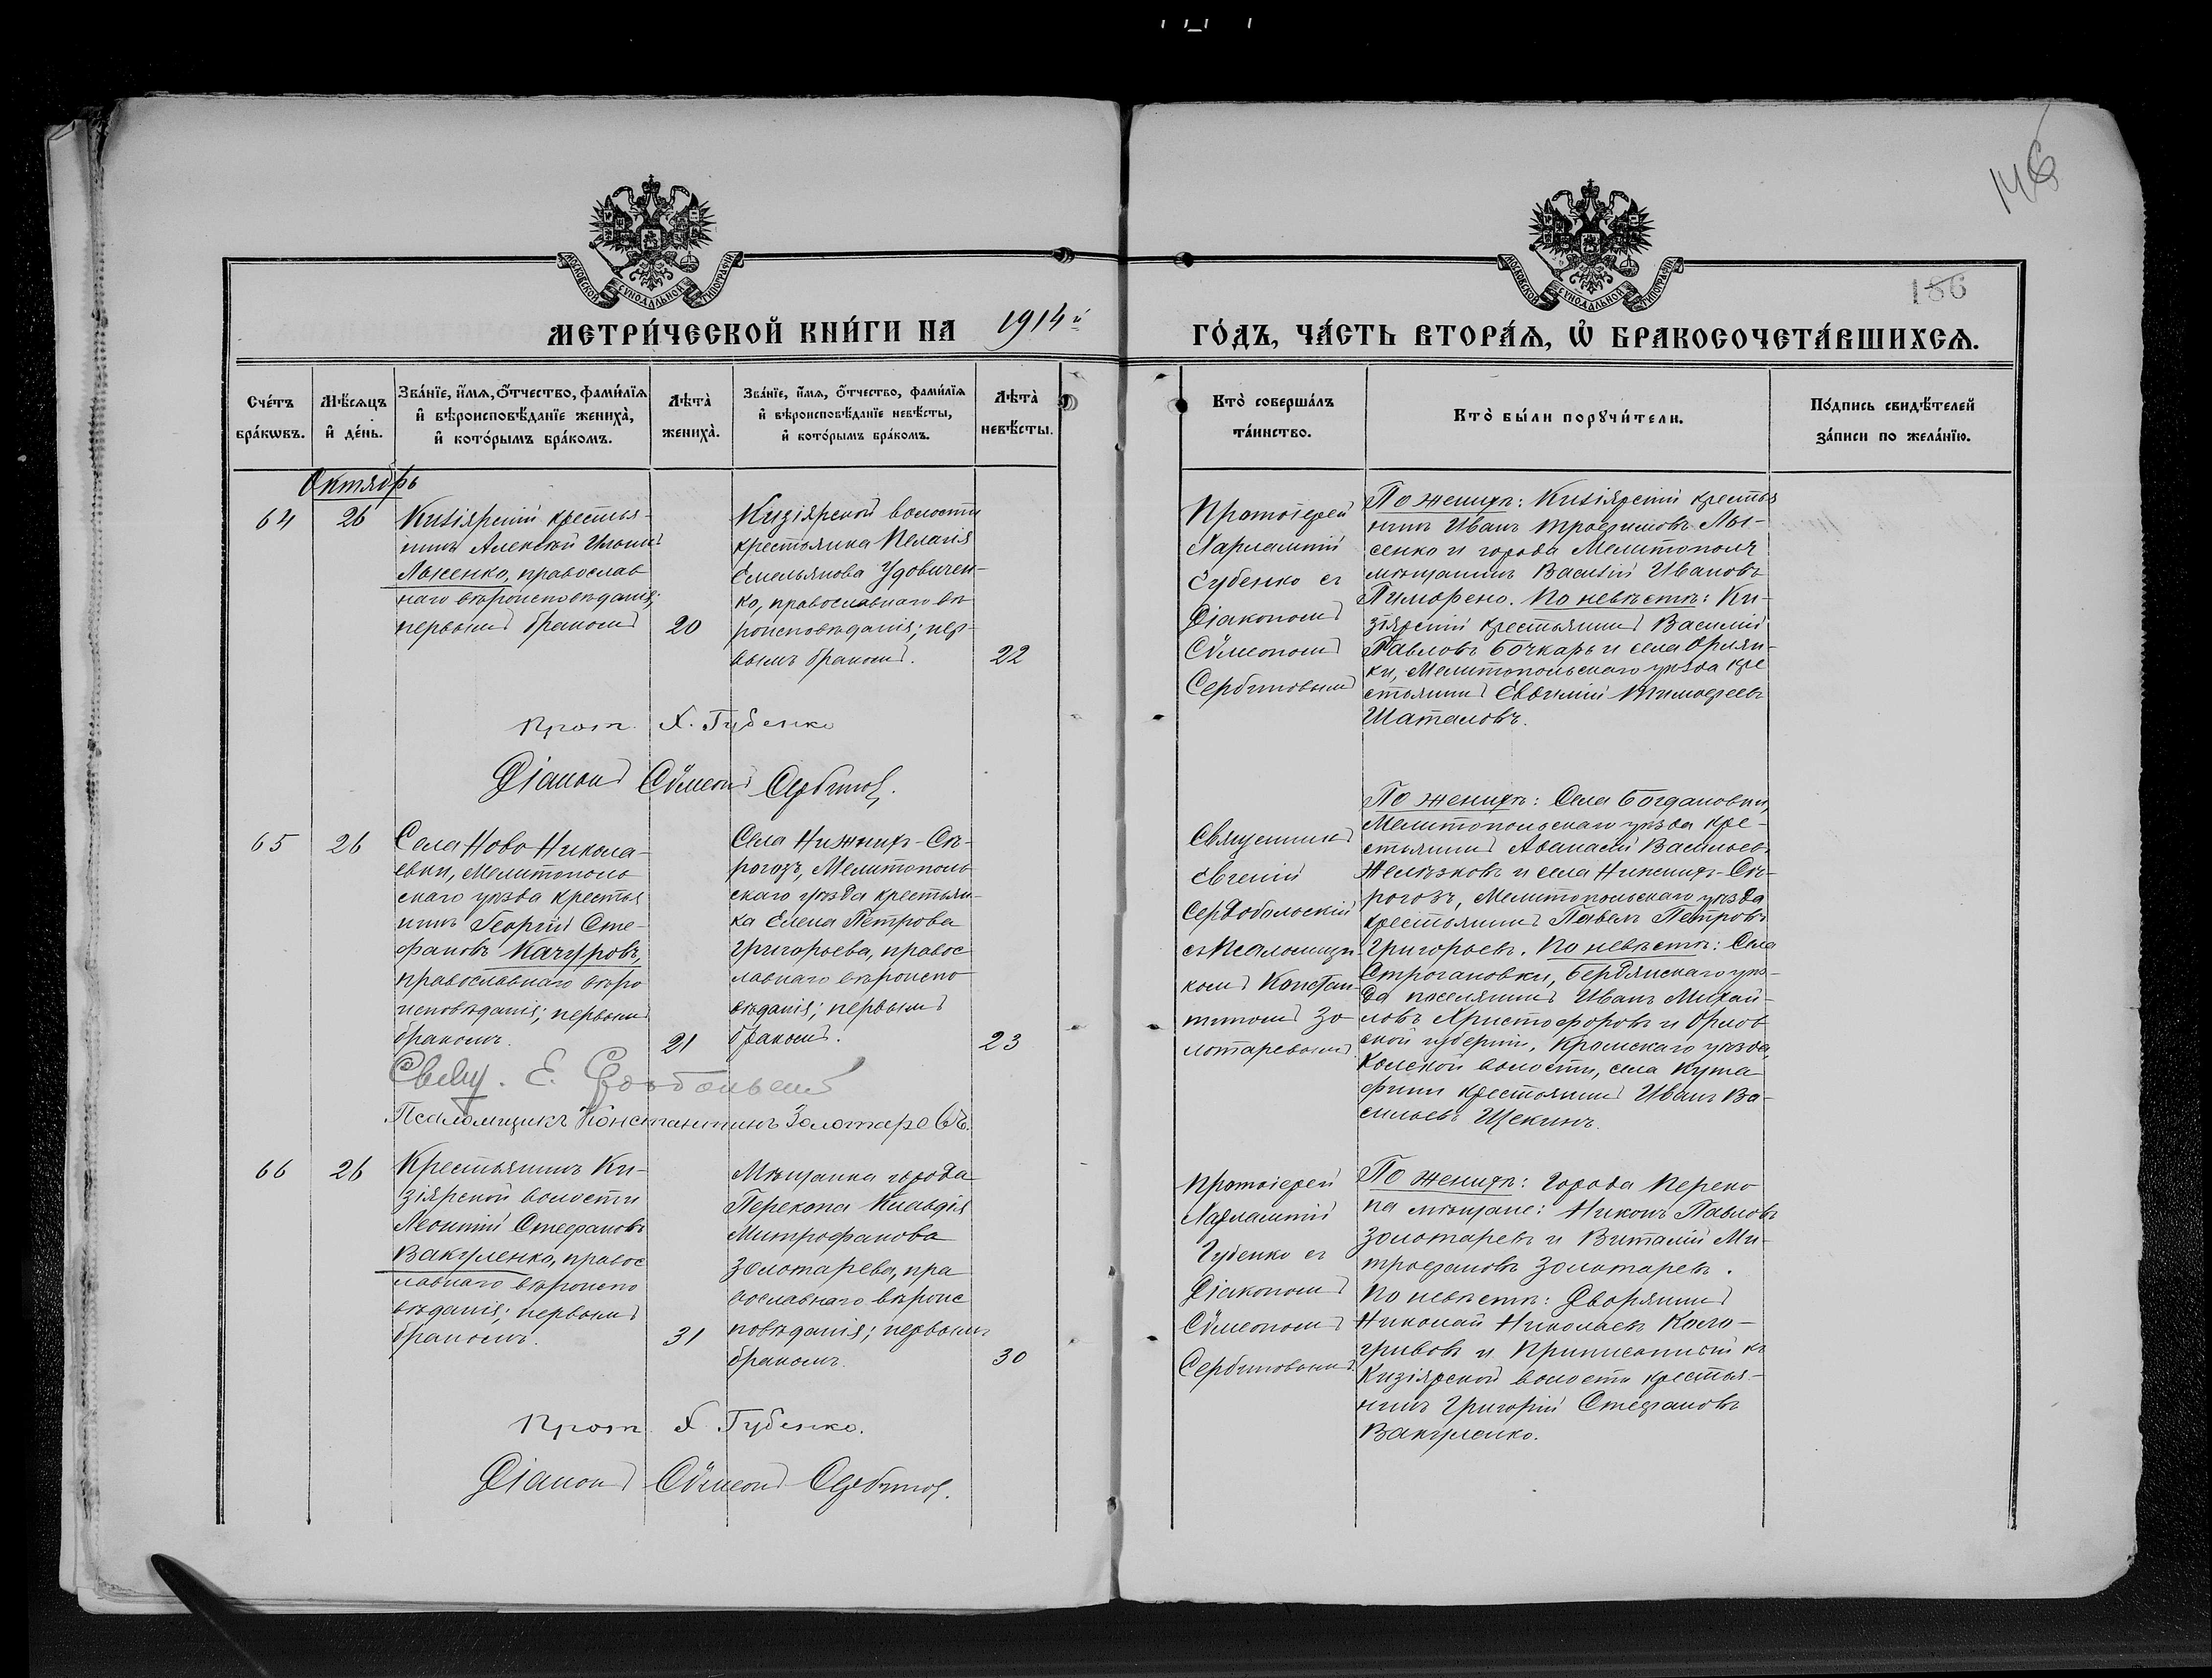 146
186
МОСКОВСКОЙ СѴНОДАЛЬНОЙ ТИПОГРАФІИ
МОСКОВСКОЙ СѴНОДАЛЬНОЙ ТИПОГРАФІИ
МЕТРИ́ЧЕСКОЙ КНИ́ГИ НА 1914й
ГО́ДЪ, ЧА́СТЬ ВТОРА́Ѧ, Ѡ҆ БРАКОСОЧЕТА́ВШИХСѦ.
Сче́тъ
бра́кѡвъ.
Мѣ́сѧцъ
и҆ де́нь.
Зва́нїе, и҆́мѧ, ѻ҆́тчество, фами́лїѧ
и҆ вѣроисповѣ́данїе жениха̀,
и҆ кото́рымъ бра́комъ.
Лѣта̀
жениха̀.
Зва́нїе, и҆́мѧ, ѻ҆́тчество, фами́лїѧ
и҆ вѣроисповѣ́данїе невѣ́сты,
и҆ кото́рымъ бра́комъ.
Лѣта̀
невѣ́сты.
Кто̀ соверша́лъ
та́инство.
Кто̀ бы́ли порꙋчи́тели.
По́дпись свидѣ́телей
за́писи по жела́нїю.
Октябрь
64
26
Кизіярскій крестья-
нинъ Алексѣй Ильинъ
Лысенко, православ
наго вѣроисповѣданія;
первымъ бракомъ
20
Кизіярской волости
крестьянка Пелагія
Емельянова Удовичен-
ко, православнаго вѣ
роисповѣданія; пер-
вымъ бракомъ.
22
Протоіерей
Харлампій
Губенко съ
Діакономъ
Сѵмеономъ
Сербиновымъ
По женихѣ: Кизіярскій крестья
нинъ Иванъ Трофимовъ Лы-
сенко и города Мелитополя
мѣщанинъ Василій Ивановъ
По невѣстѣ: Ки-
зіярскій крестьянинъ Василій
Павловъ Бочкарь и села Орлян-
ки, Мелитопольскаго уѣзда кре
стьянинъ Евѳимій Тимоѳеевъ
Шаталовъ.
Прот. Х. Губенко
Діаконъ Сѵмеонъ Сербиновъ.
65
26
Села Ново-Никола-
евки, Мелитополь
скаго уѣзда крестья
нинъ Георгій Сте-
фановъ Качуровъ,
православнаго вѣро
исповѣданія; первымъ
бракомъ.
21
Села Нижнихъ-Сѣ-
рогозъ, Мелитополь
скаго уѣзда крестьян-
ка Елена Петрова
Григорьева, правос
лавнаго вѣроиспо
вѣданія; первымъ
бракомъ.
23
Священникъ
Евгеній
Сердобольскій
съ Псаломщи
комъ Констан-
тиномъ Зо-
лотаревымъ
По женихѣ: Села Богдановки,
Мелитопольскаго уѣзда кре-
стьянинъ Аѳанасій Васильевъ
Желѣзковъ и села Нижнихъ-Сѣ-
рогозъ, Мелитопольскаго уѣзда
крестьянинъ Павелъ Петровъ
Григорьевъ. По невѣстѣ: Села
Строгановки, Бердянскаго уѣз-
да поселянинъ Иванъ Михай-
ловъ Христофоровъ и Орлов
ской губерніи, Кромскаго уѣзда,
волости, села Кута
фини крестьянинъ Иванъ Ва-
сильевъ Щекинъ.
Свящ. Е. Сердобольскій
Псаломщикъ Константинъ Золотаревъ.
66
26
Крестьянинъ Ки-
зіярской волости
Леонтій Стефановъ
Вакуленко, правос
лавнаго вѣроиспо
вѣданія; первымъ
бракомъ.
31
Мѣщанка города
Перекопа Клавдія
Митрофанова
Золотарева, пра
вославнаго вѣроис
повѣданія; первымъ
бракомъ.
30
Протоіерей
Харлампій
Губенко съ
Діакономъ
Сѵмеономъ
Сербиновымъ.
По женихѣ: города Переко
па мѣщане: Никонъ Павловъ
Золотаревъ и Виталій Ми-
трофановъ Золотаревъ.
По невѣстѣ: Дворянинъ
Николай Николаевъ Коло-
гривовъ и Приписанный къ
Кизіярской волости крестья-
нинъ Григорій Стефановъ
Вакуленко.
Прот. Х. Губенко.
Діаконъ Сѵмеонъ Сербиновъ.